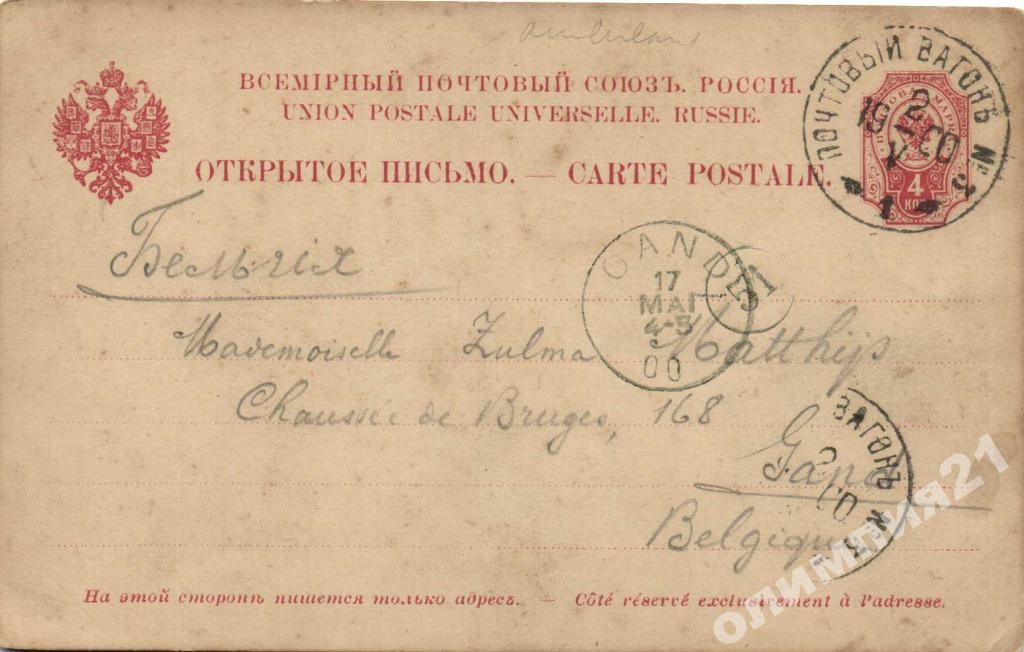 ВСЕМІРНЫЙ ПОЧТОВЫЙ СОЮЗЪ. РОССІЯ.
UNION POSTALE UNIVERSELLE. RUSSIE.
ОТКРЫТОЕ ПИСЬМО. — CARTE POSTALE.
ПОЧТОВЫЙ ВАГОНЪ №
1
4
КОП
Бельгія
GAND
17
MAI
4-5
00
Mademoiselle Zulma Matthijs
Chaussée de Bruges, 168
Gand
Belgique
ВАГОНЪ №
На этой сторонѣ пишется только адресъ. — Côté réservé exclusivement à l'adresse.
олимпия21